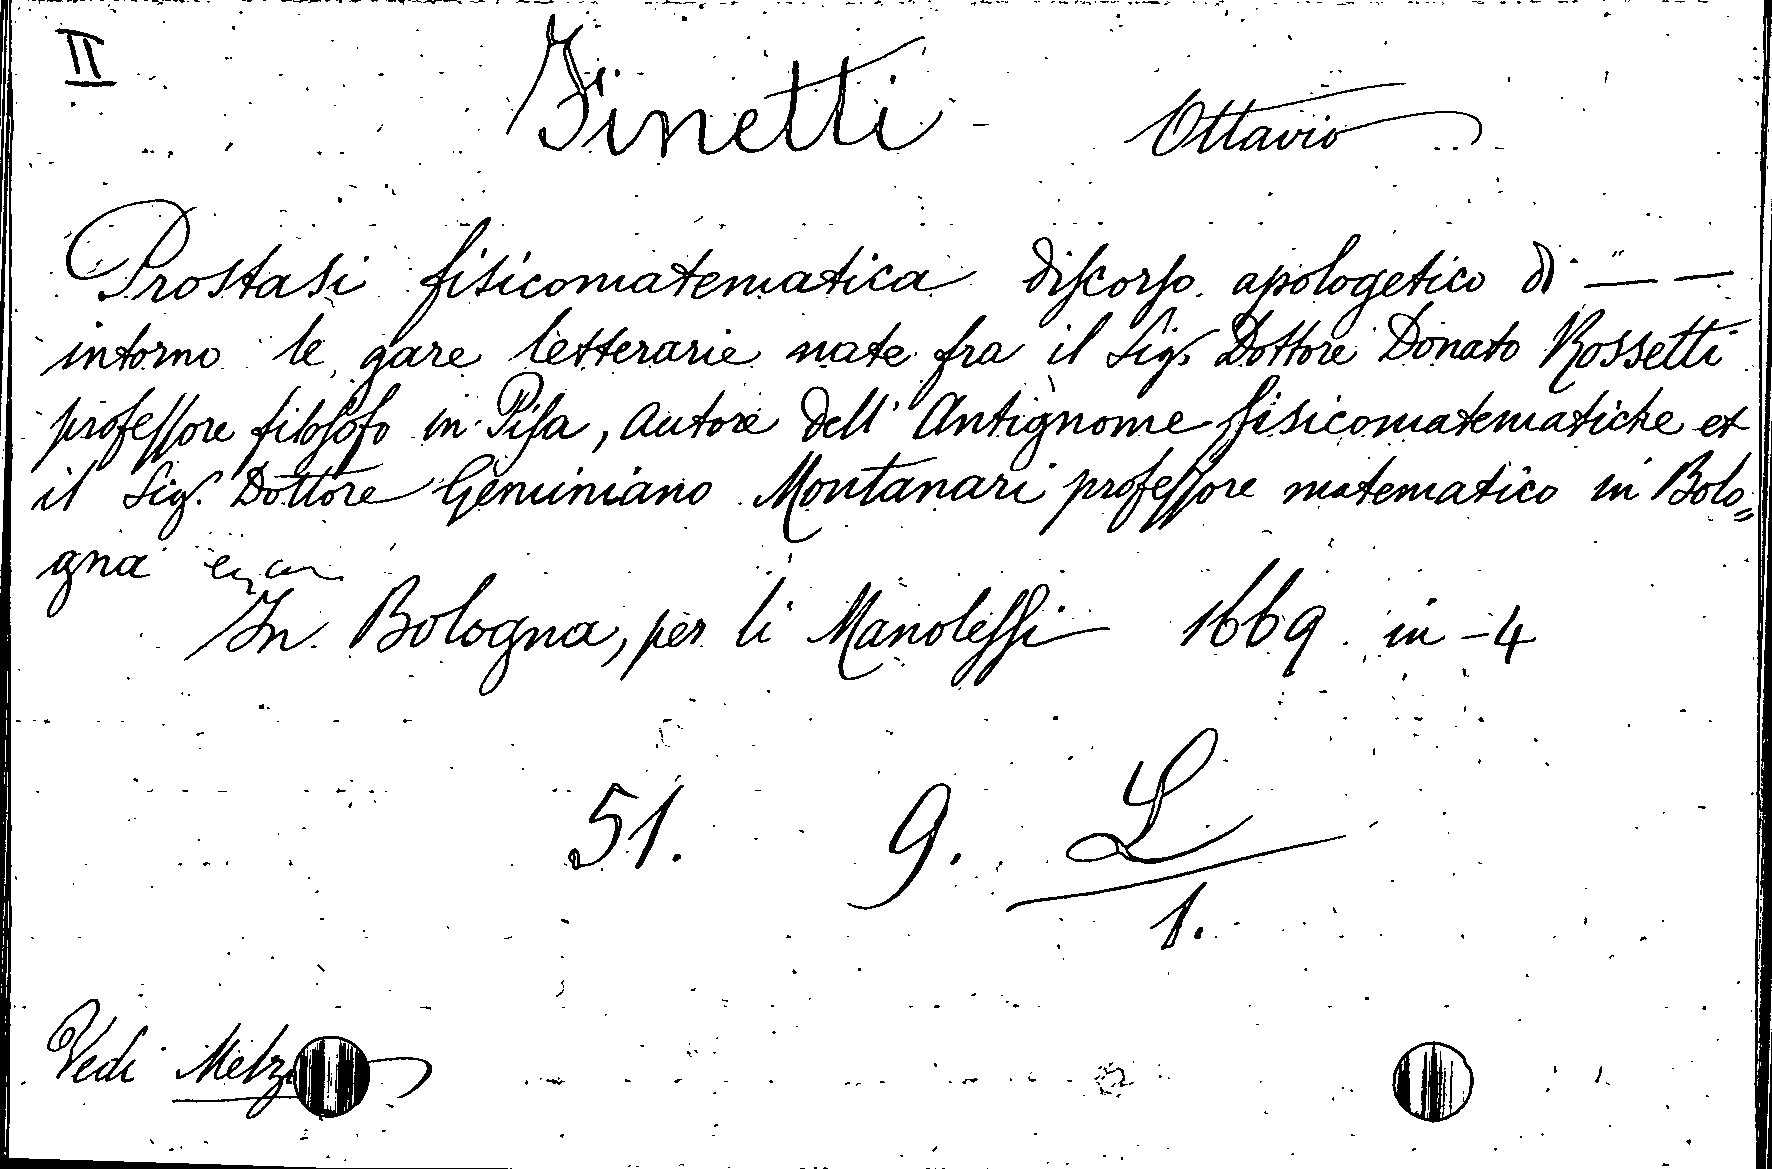 II
Finetti Ottavio
Prostasi fisicomatematica discorso apologetico di — —
intorno le gare letterarie nate fra il Sig. Dottore Donato Rossetti
professore filosofo in Pisa, autore dell' Antignome fisicomatematiche et
il Sig. Dottore Geminiano Montanari professore matematico in Bolo=
gna
In Bologna, per li Manolessi 1669 in-4
51. 9. L
1.
Vedi